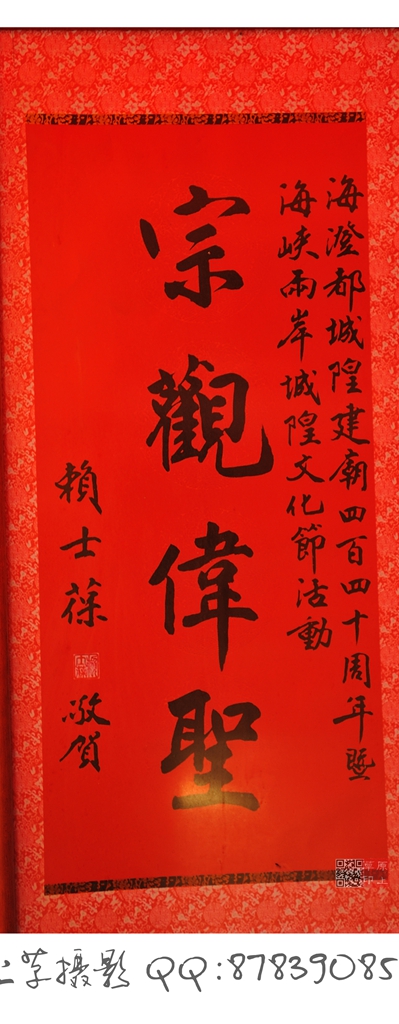 海澄都城隍建廟四百四十周年暨
海峽兩岸城隍文化節活動
宗觀偉聖
賴士葆 敬賀
上草摄影 QQ:87839085